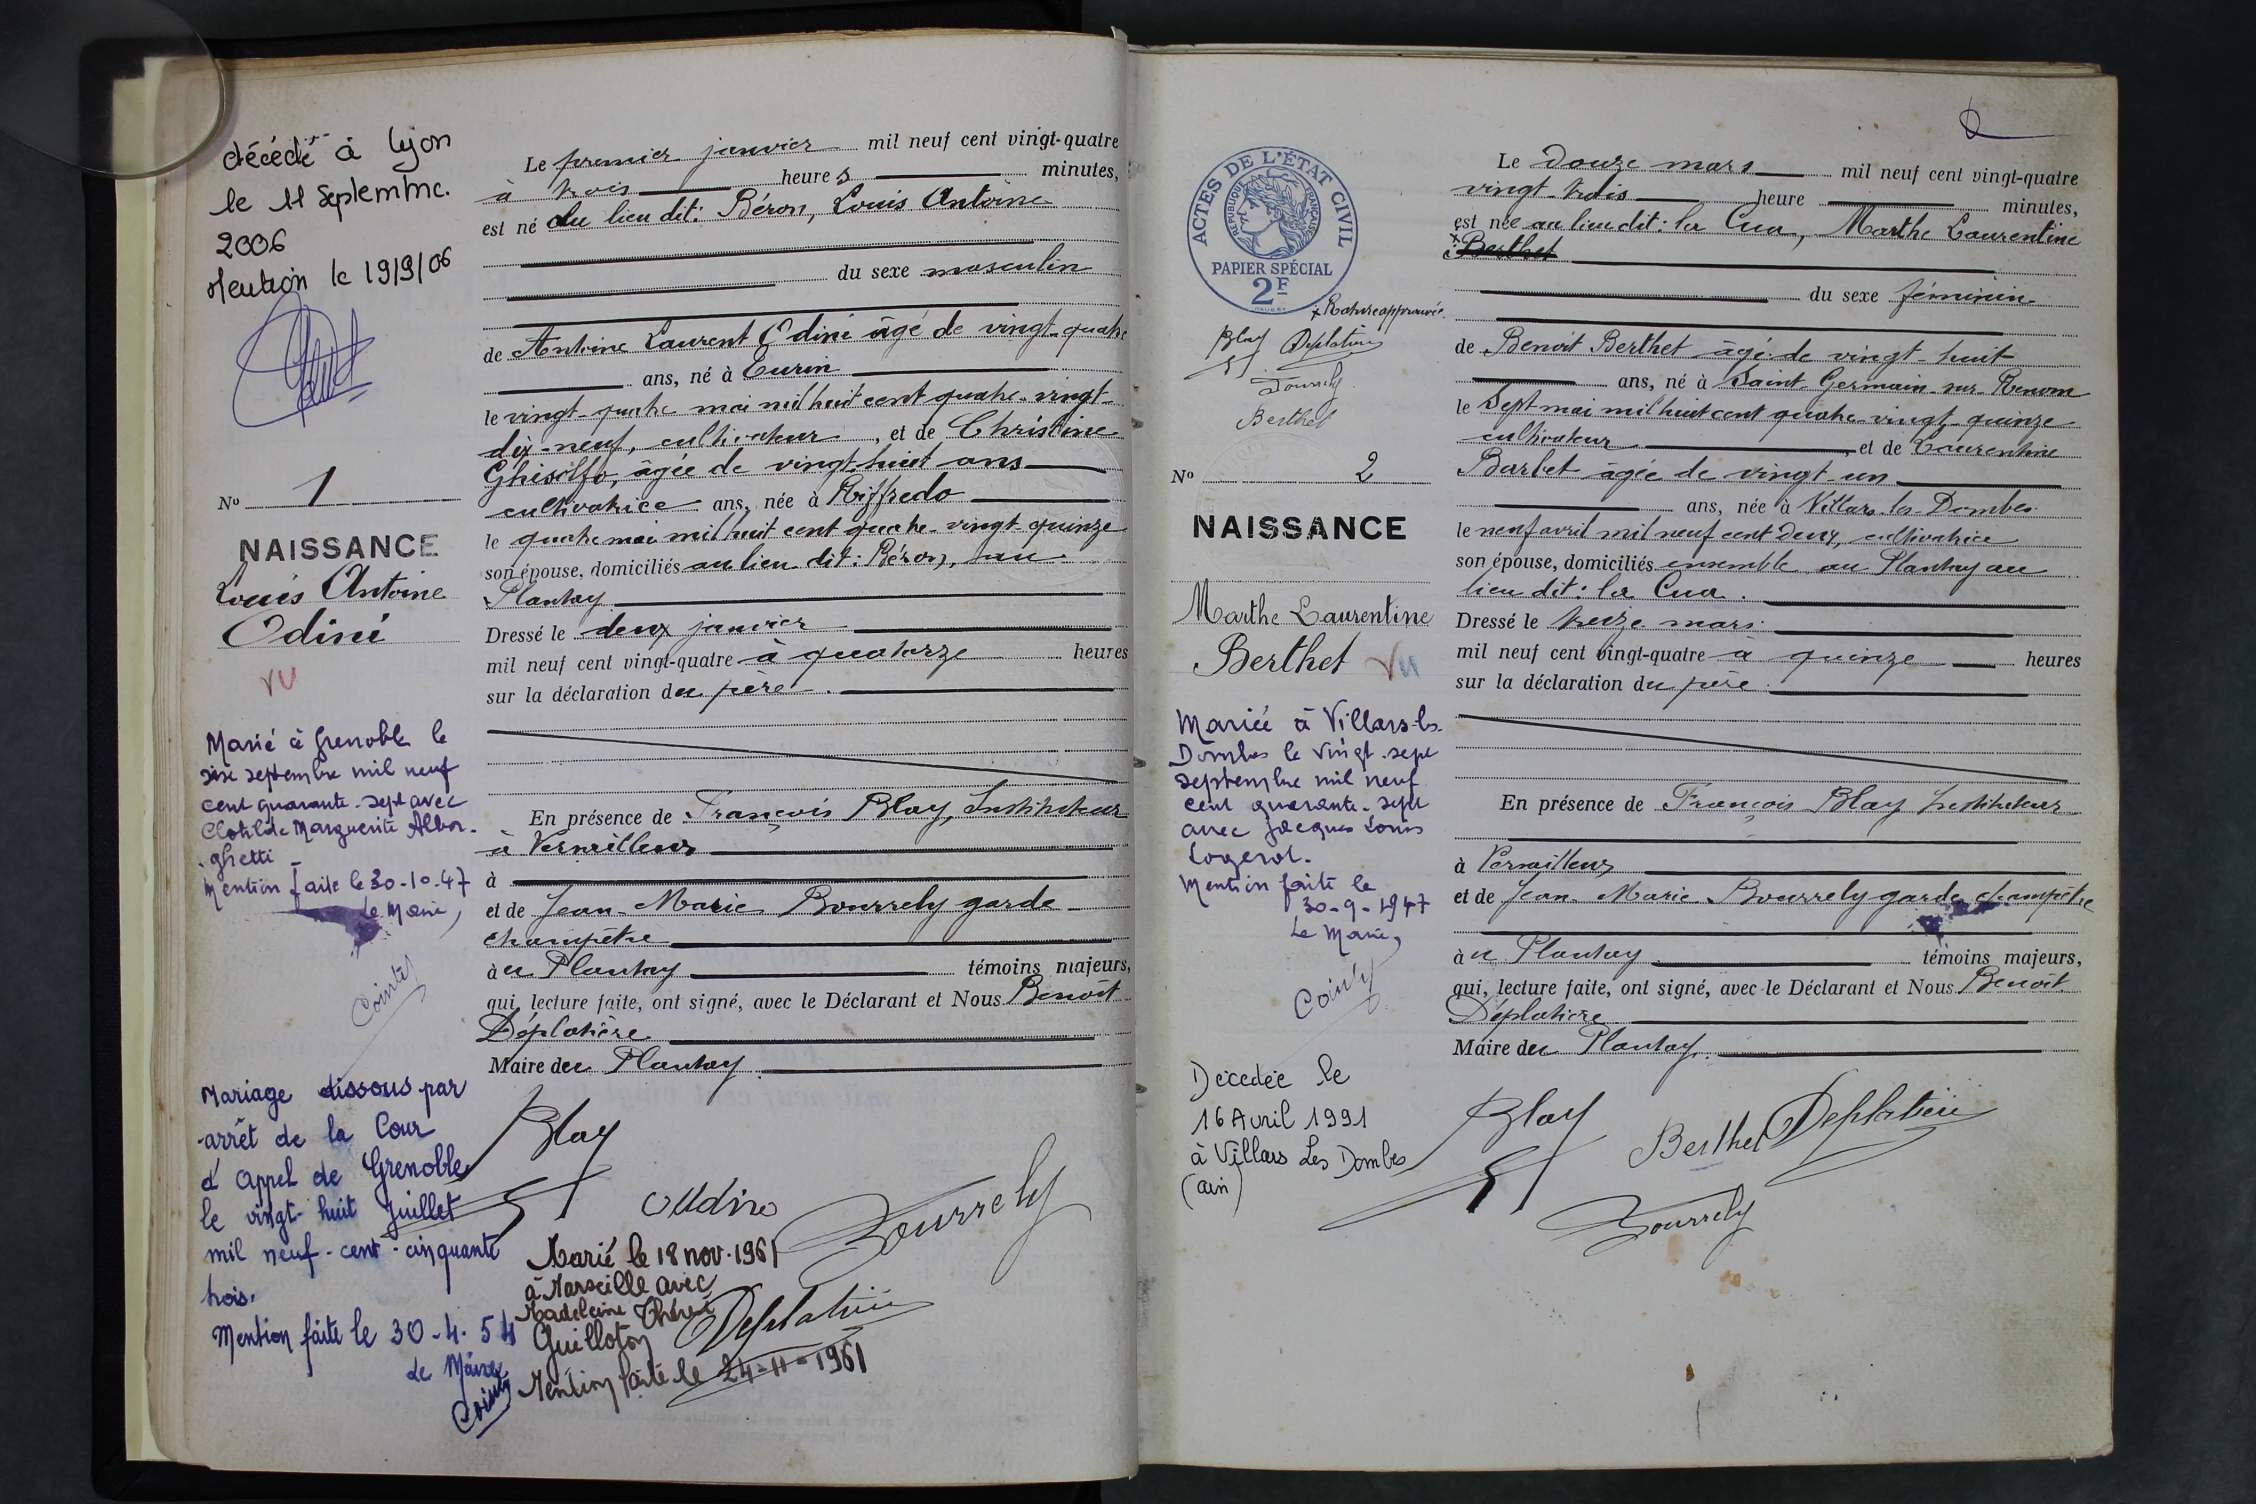 décédé à Lyon
le 11 Septembre.
2006
Mention le 19/9/06
No 1
NAISSANCE
Louis Antoine
Odini
VU
Marié à Grenoble le
six septembre mil neuf
cent quarante-sept avec
Clotilde Marguerite Albor-
ghetti _
Mention faite le 30-10-47
Le Maire,
Cointy
Mariage dissous par
arrêt de la Cour
d'appel de Grenoble
le vingt-huit Juillet
mil neuf-cent-cinquante
trois.
Mention faite le 30-4-54
Le Maire
Cointy
Le premier janvier mil neuf cent vingt-quatre
à trois heures minutes,
est né au lieu dit: Béron, Louis Antoine
du sexe masculin
de Antoine Laurent Odini âgé de vingt-quatre
ans, né à Turin
le vingt-quatre mai mil huit cent quatre-vingt-
dix-neuf, cultivateur, et de Christine
Ghisolfo, âgée de vingt-huit ans
cultivatrice ans, née à Riffredo
le quatre mai mil huit cent quatre-vingt-quinze
son épouse, domiciliés au lieu dit: Béron, au
Plantay
Dressé le deux janvier
mil neuf cent vingt-quatre à quatorze heures
sur la déclaration du père.
En présence de François Blay, Instituteur
à Versailleux
à
et de Jean-Marie Bourrely garde-
champêtre
au Plantay témoins majeurs,
qui, lecture faite, ont signé, avec le Déclarant et Nous Benoît
Déplatière
Maire du Plantay.
Blay
Oddino
Bourrely
Marié le 18 nov. 1961
à Marseille avec
Madeleine Thérèse
Guilloton
Déplatière
Mention faite le 24-11-1961
2
ACTES DE L'ÉTAT CIVIL
RÉPUBLIQUE FRANÇAISE
PAPIER SPÉCIAL
2F
x Rature approuvée.
Blay Déplatière
Bourrely
Berthet
No 2
NAISSANCE
Marthe Laurentine
Berthet VU
Mariée à Villars-les-
Dombes le vingt-sept
septembre mil neuf
cent quarante-sept
avec Jacques Louis
Logerot.
Mention faite le
30-9-1947
Le Maire,
Cointy
Décédée le
16 Avril 1991
à Villars Les Dombes
(Ain)
Le douze mars mil neuf cent vingt-quatre
vingt-trois heure minutes,
est née au lieu dit: la Cua, Marthe Laurentine
x Berthet
du sexe féminin
de Benoît Berthet âgé de vingt-huit
ans, né à Saint-Germain-sur-Renom
le sept mai mil huit cent quatre-vingt-quinze
cultivateur et de Laurentine
Barbet âgée de vingt-un
ans, née à Villars-les-Dombes
le neuf avril mil neuf cent deux, cultivatrice
son épouse, domiciliés ensemble au Plantay au
lieu dit: la Cua.
Dressé le treize mars
mil neuf cent vingt-quatre à quinze heures
sur la déclaration du père.
En présence de François Blay Instituteur
à Versailleux
et de Jean-Marie Bourrely garde champêtre
au Plantay témoins majeurs,
qui, lecture faite, ont signé, avec le Déclarant et Nous Benoît
Déplatière
Maire du Plantay.
Blay
Berthet Déplatière
Bourrely